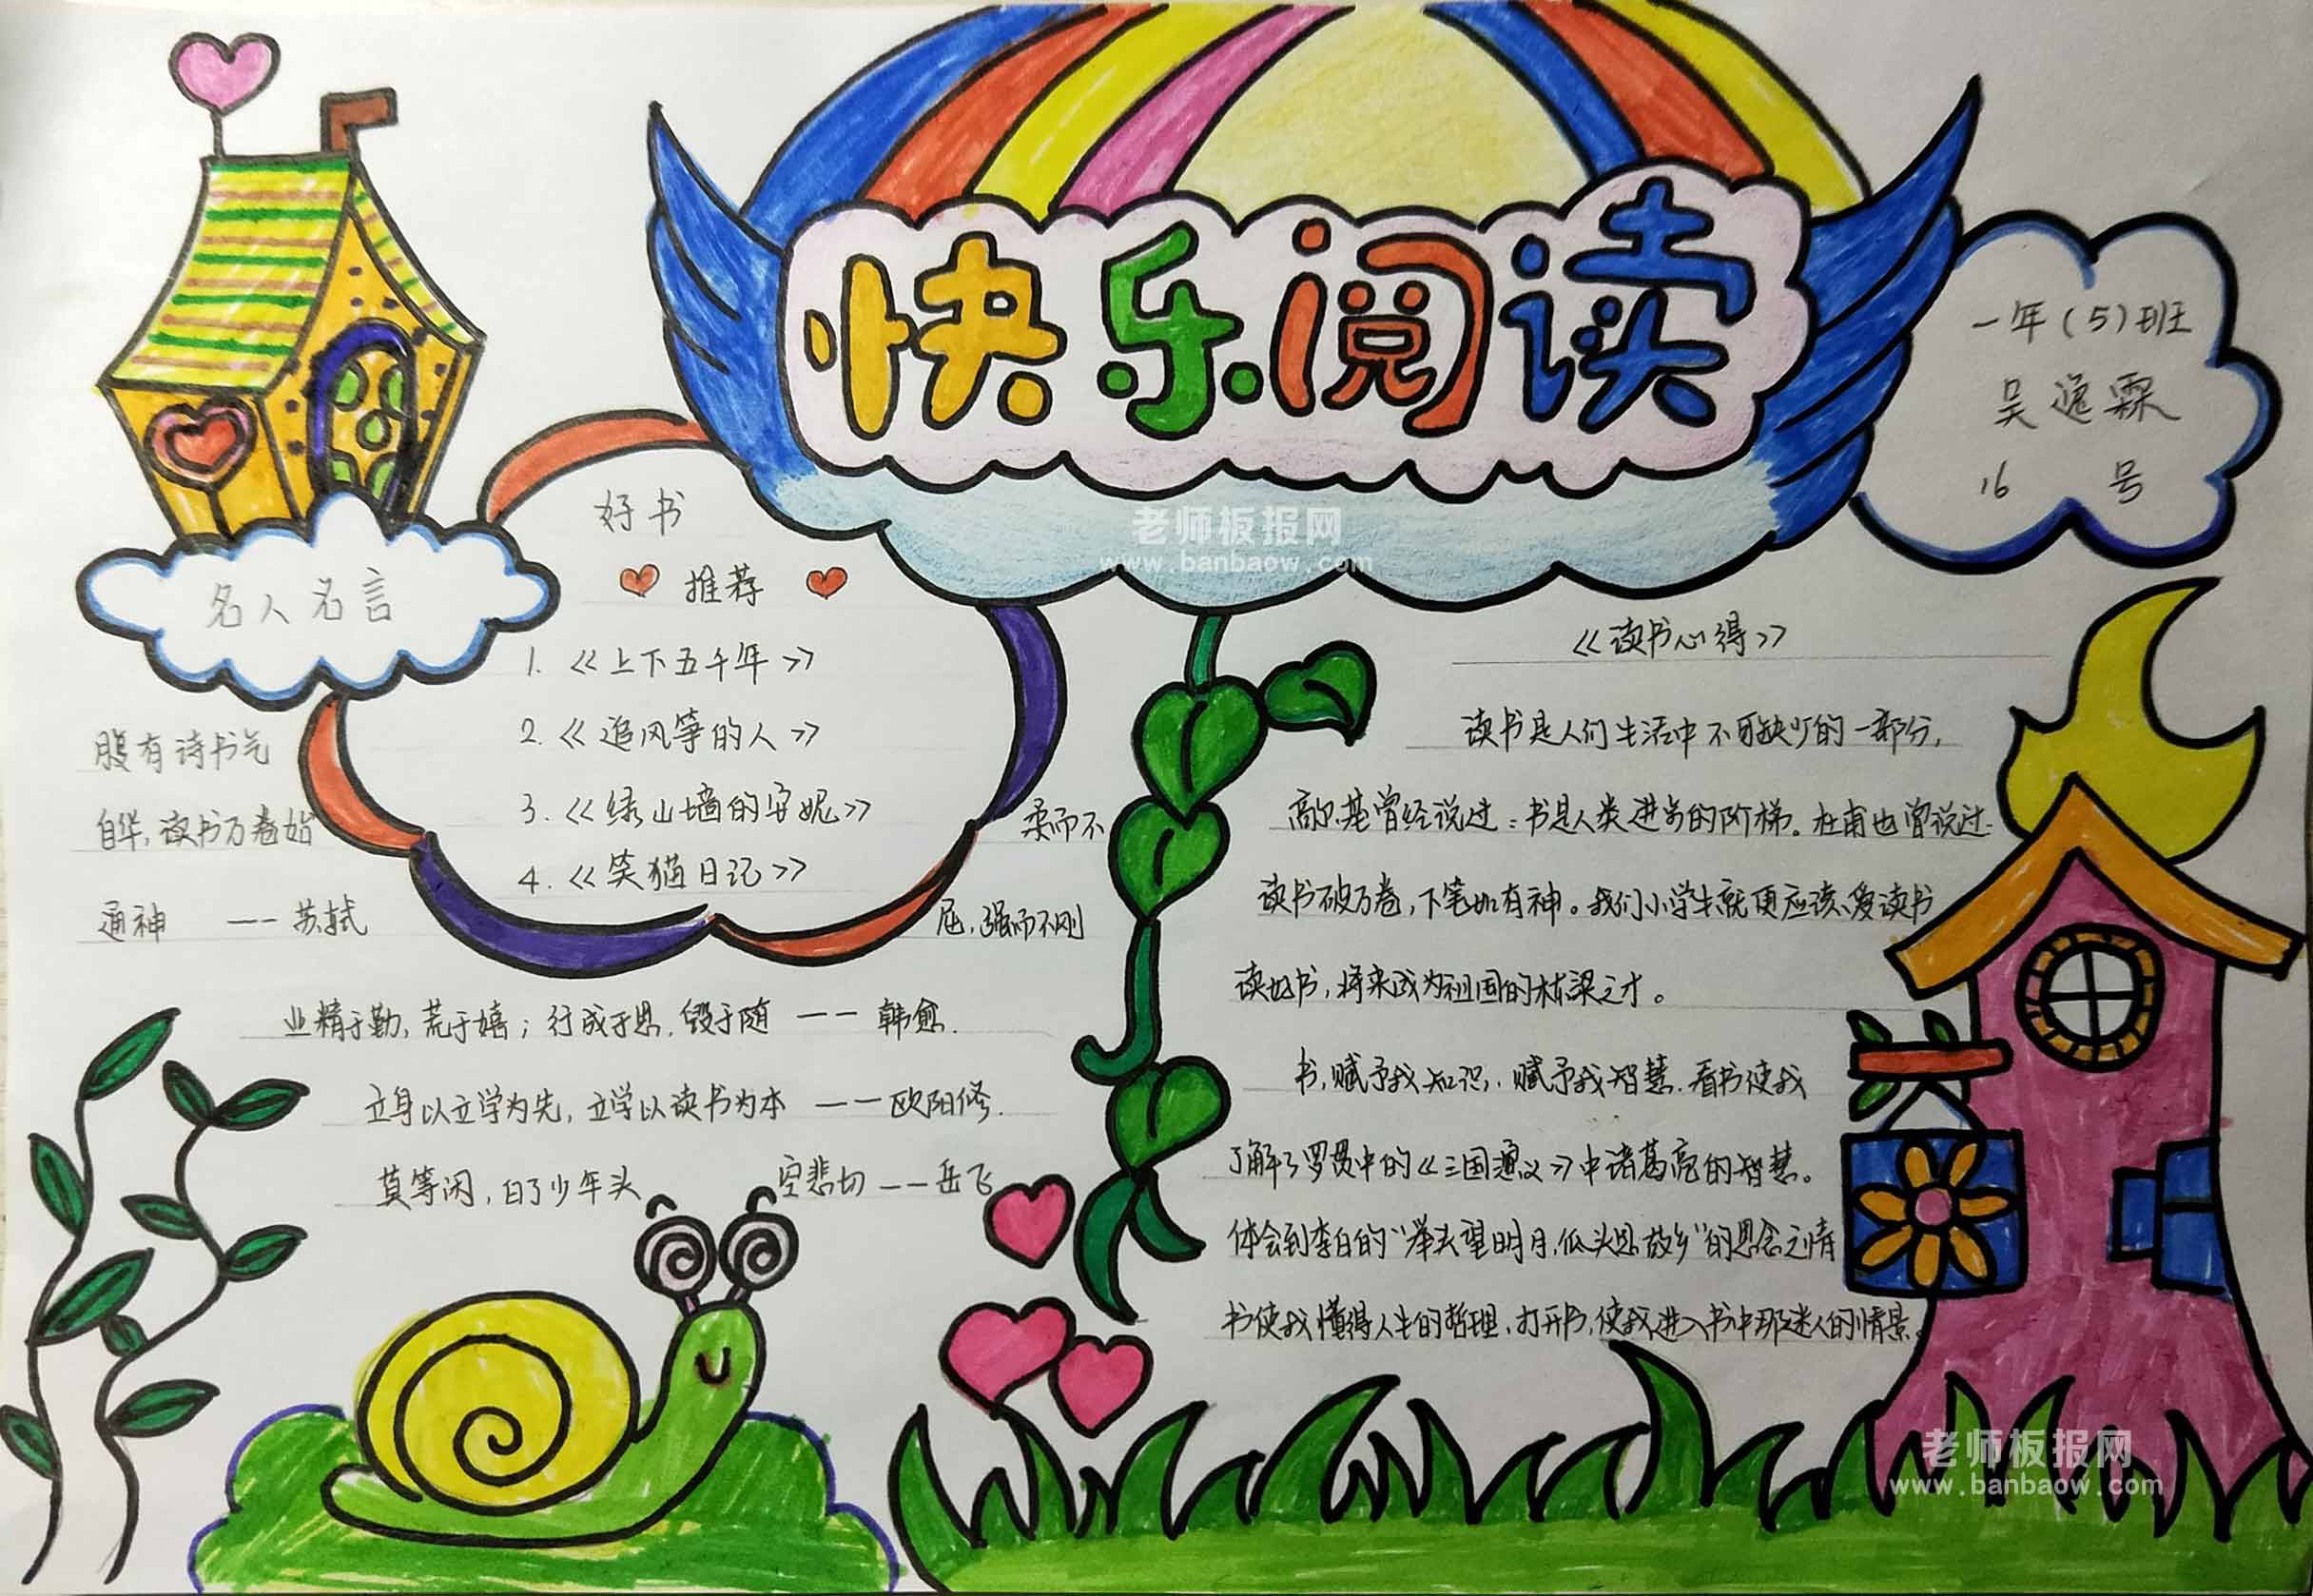 快乐阅读
一年(5)班
吴逸霖
16 号
老师板报网
www.banbaow.com
名人名言
腹有诗书气
自华,读书万卷始
通神 —— 苏轼
好书
推荐
1.《上下五千年》
2.《追风筝的人》
3.《绿山墙的安妮》
4.《笑猫日记》
柔而不
屈,强而不刚
业精于勤,荒于嬉;行成于思,毁于随 —— 韩愈.
立身以立学为先,立学以读书为本 ——欧阳修.
莫等闲,白了少年头 空悲切——岳飞
《读书心得》
读书是人们生活中不可缺少的一部分,
高尔基曾经说过:书是人类进步的阶梯。杜甫也曾说过:
读书破万卷,下笔如有神。我们小学生就更应该爱读书
读好书,将来成为祖国的栋梁之才。
书,赋予我知识,赋予我智慧.看书使我
了解了罗贯中的《三国演义》中诸葛亮的智慧。
体会到李白的“举头望明月,低头思故乡”的思念之情
书使我懂得人生的哲理,打开书,使我进入书中那迷人的情景。
老师板报网
www.banbaow.com